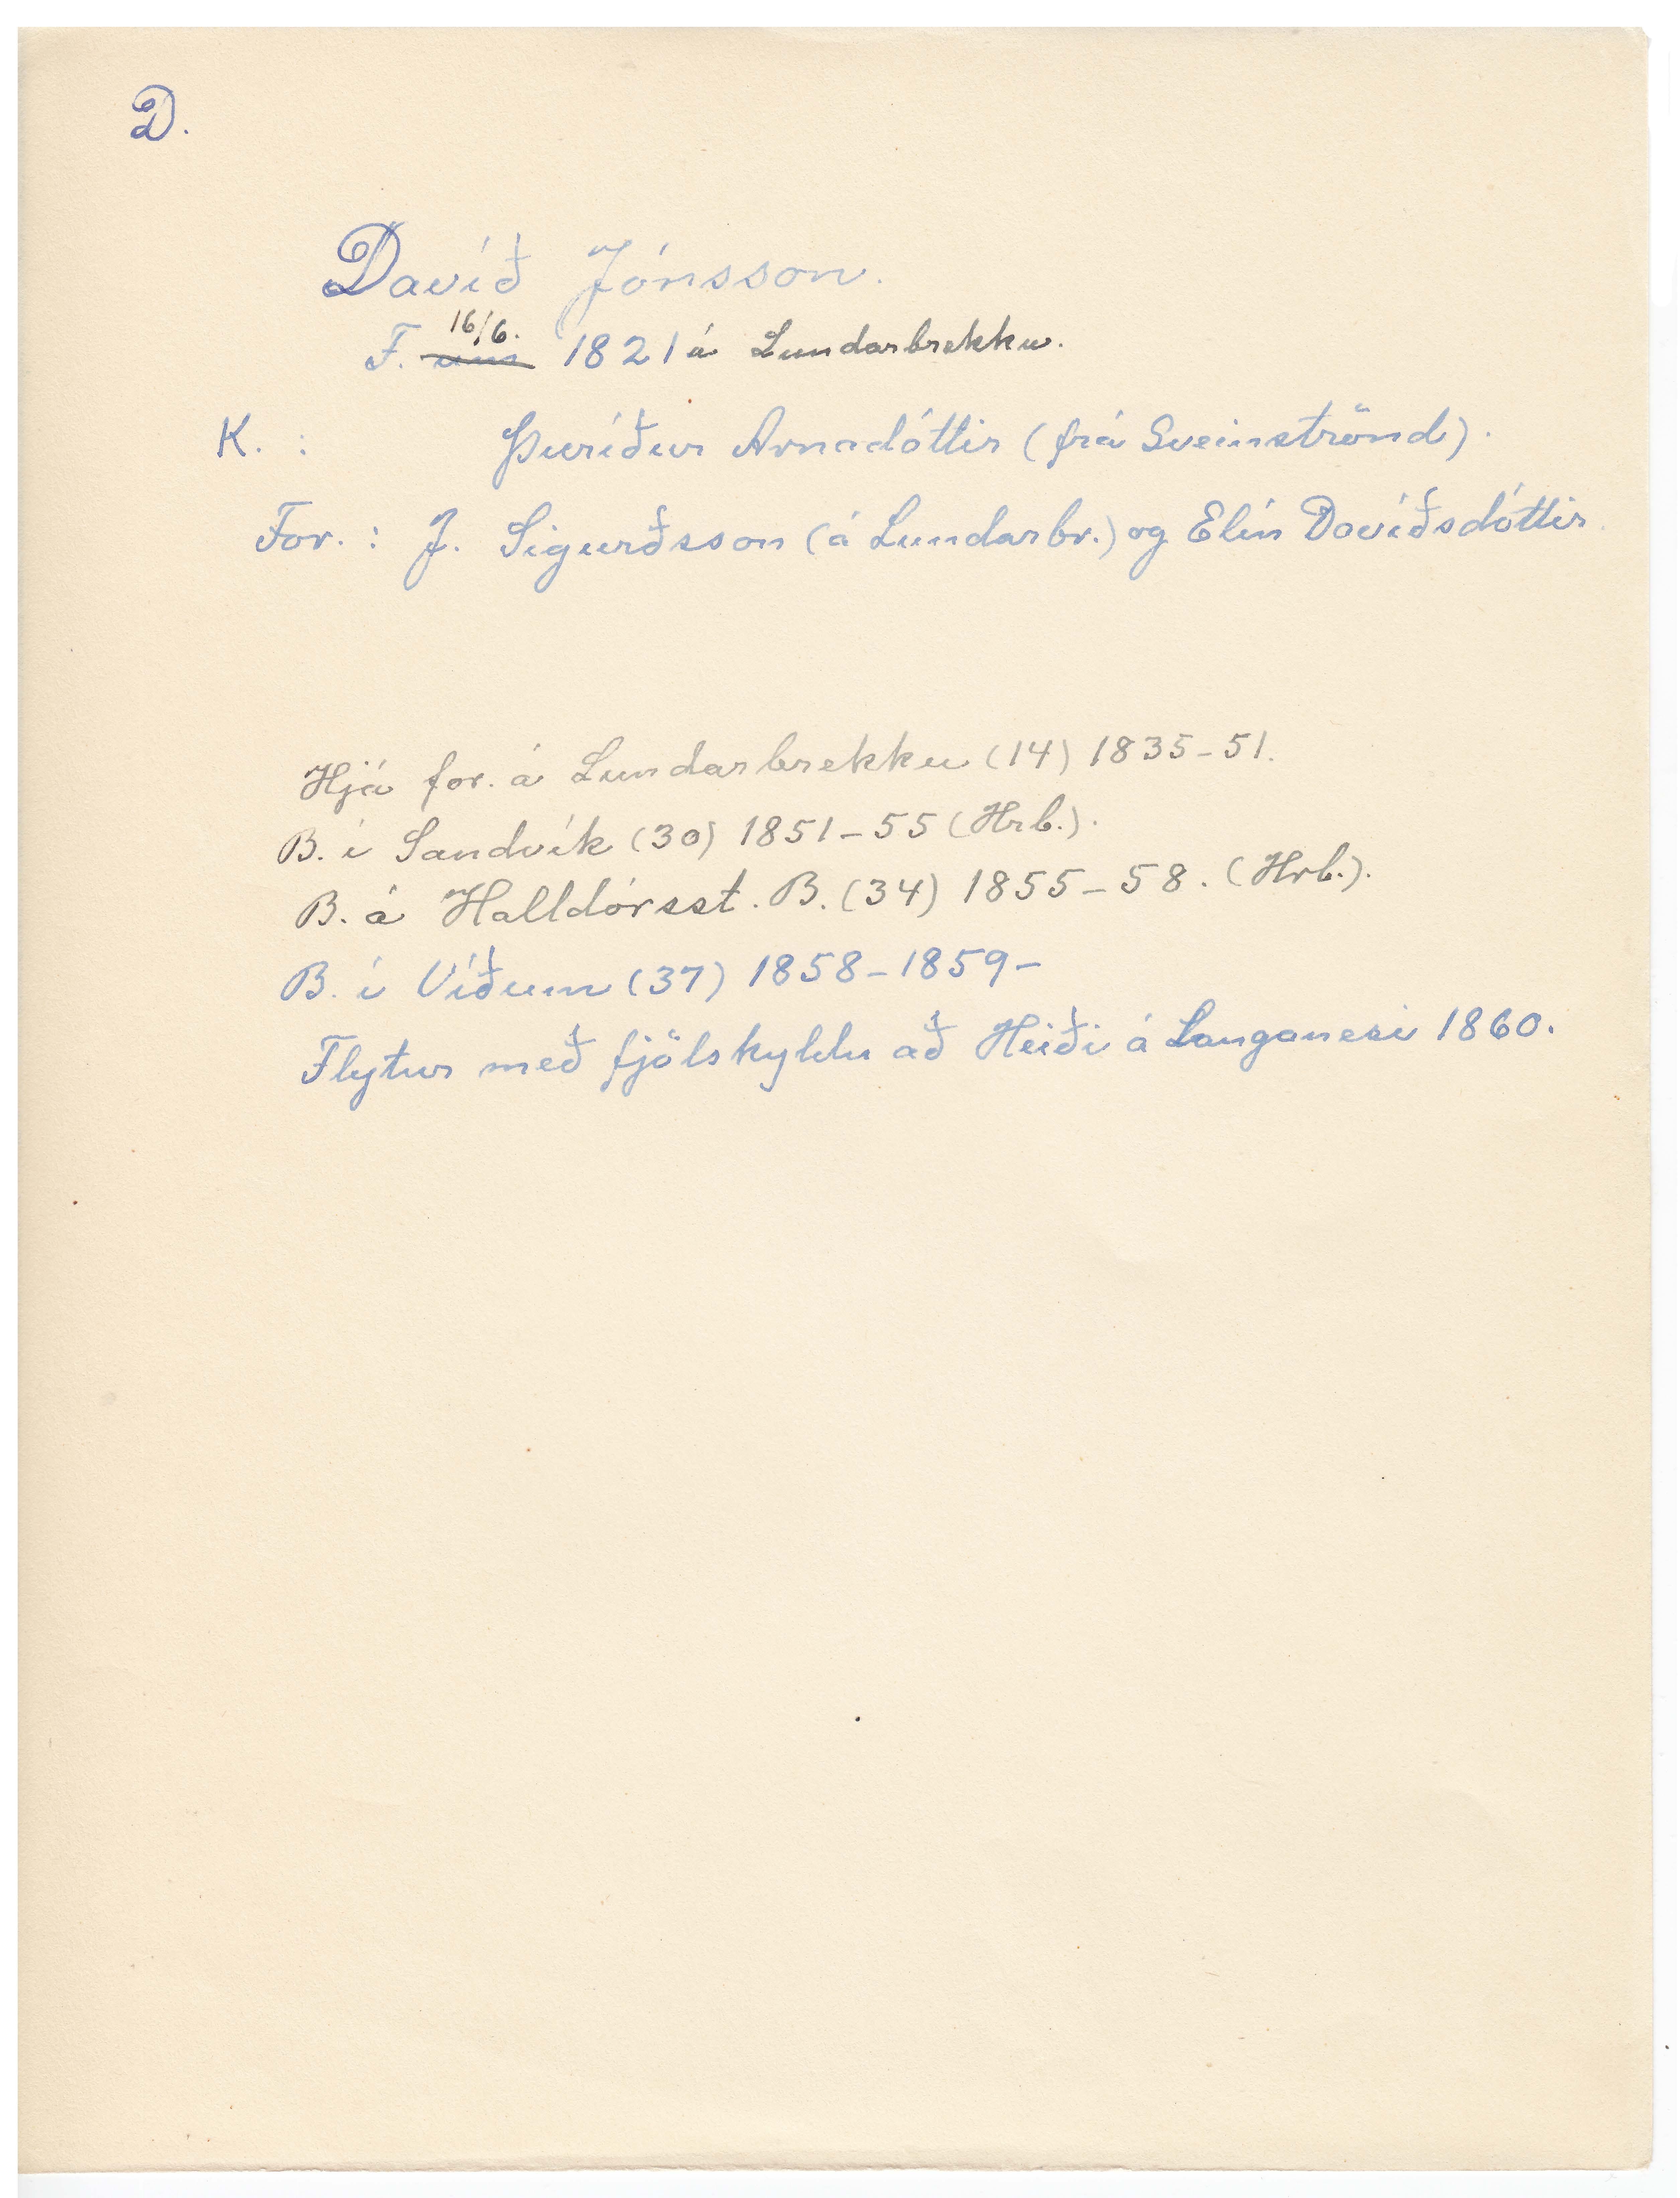 D.
Davíð Jónsson.
16/6.
F. um 1821 á Lundarbrekku.
K. : Þuríður Arnadóttir (frá Sveinströnd).
For. : J. Sigurðsson (á Lundarbr.) og Elín Davíðsdóttir.
Hjá for. á Lundarbrekku (14) 1835-51.
B. í Sandvík (30) 1851-55 (Hrb.).
B. á Halldórsst. B. (34) 1855-58. (Hrb.).
B. í Víðum (37) 1858-1859-
Flytur með fjölskyldu að Heiði á Langanesi 1860.